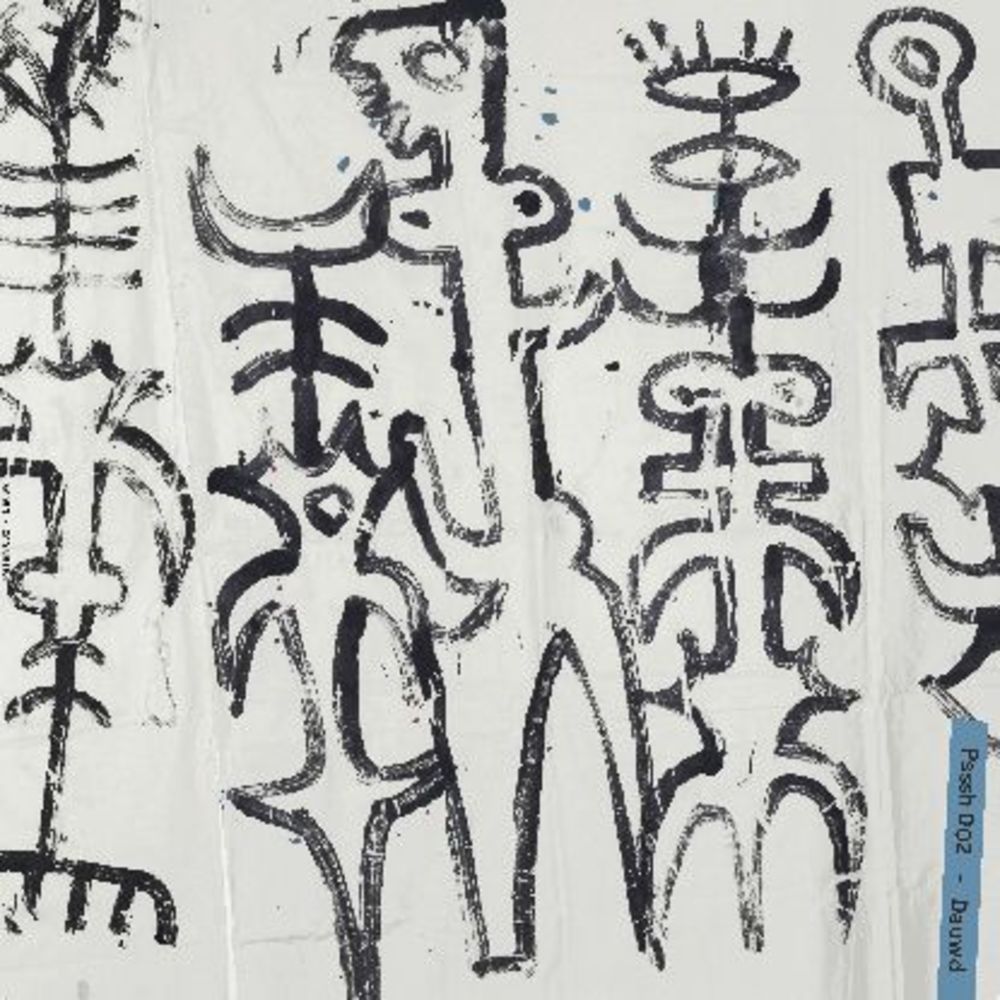 Psssh D02 - Dauwd